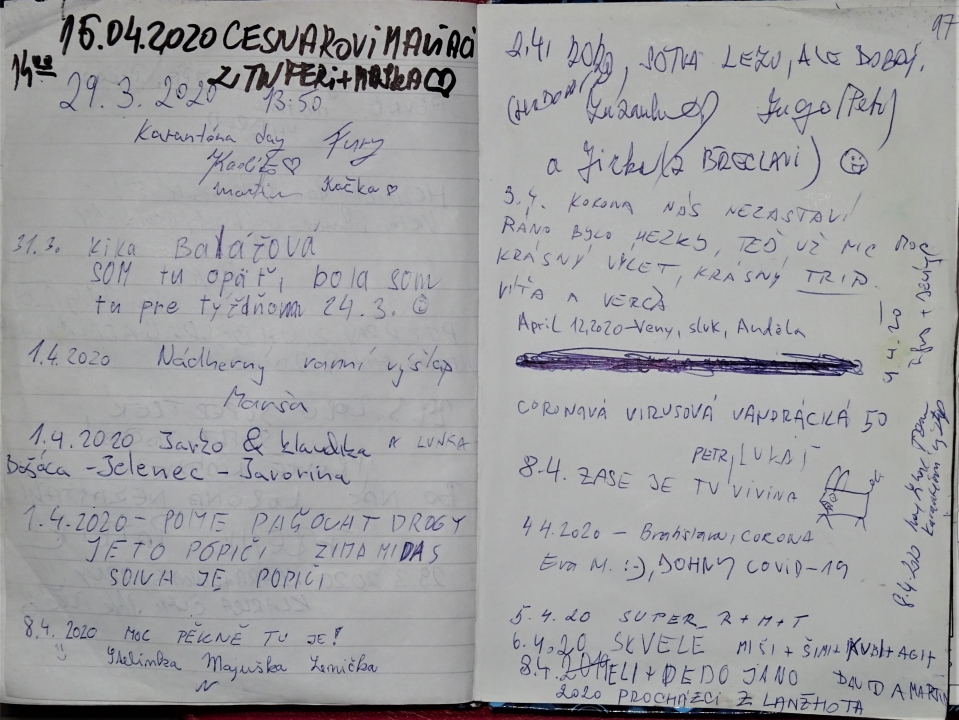 15.04.2020 CESNAROVI MAVIACI
14⁰⁰ Z TN FERI+MAJKA♡
29.3.2020 13:50
Karanténa day Fury
Kadič♡
Martin Kačka♡
31.3. Kika Balážová
SOM tu opäť, bola som
tu pre týždňom 24.3. ☺
1.4.2020 Nádherný ranní výšlap
Maruša
1.4.2020 Jaržo & Klaudika A LUNKA
Bošáca - Jelenec - Javorina
1.4.2020 - POME PAŠOVAT DROGY
JE TO POPIČI ZIMA MI DAS
SOIVA JE POPIČI
8.4.2020 MOC PĚKNĚ TU JE!
Majuška Zemička
97
2.4. 2020, SOTVA LEZU, ALE DOBRÝ.
Zuzanka Jugo (Petr)
a Jirka (Z BŘECLAVI) ☺
3.4. KORONA NÁS NEZASTAVÍ
RÁNO BYLO HEZKY, TEĎ UŽ MC MOC
KRÁSNÝ VÝLET, KRÁSNÝ TRIP.
VÍŤA A VERČA
April 12, 2020 - Veny, sluk, Andala
CORONAVÁ VIRUSOVÁ VANDRÁCKÁ 50
PETR, LUKÁŠ
8.4. ZASE JE TU VIVINA
4 4.2020 - Bratislava, CORONA
Eva M. :-), DOHNY COVID-19
5.4.20 SUPER R+M+T
6.4.20 SKVELE MIŠI + ŠIMI + KUBI + AGIT
8.4. 2019 ELI + DEDO JANO DAVID A MARTIN
2020 PROCHÁZECI Z LANŽHOTA
4.4.20
8.4.2020